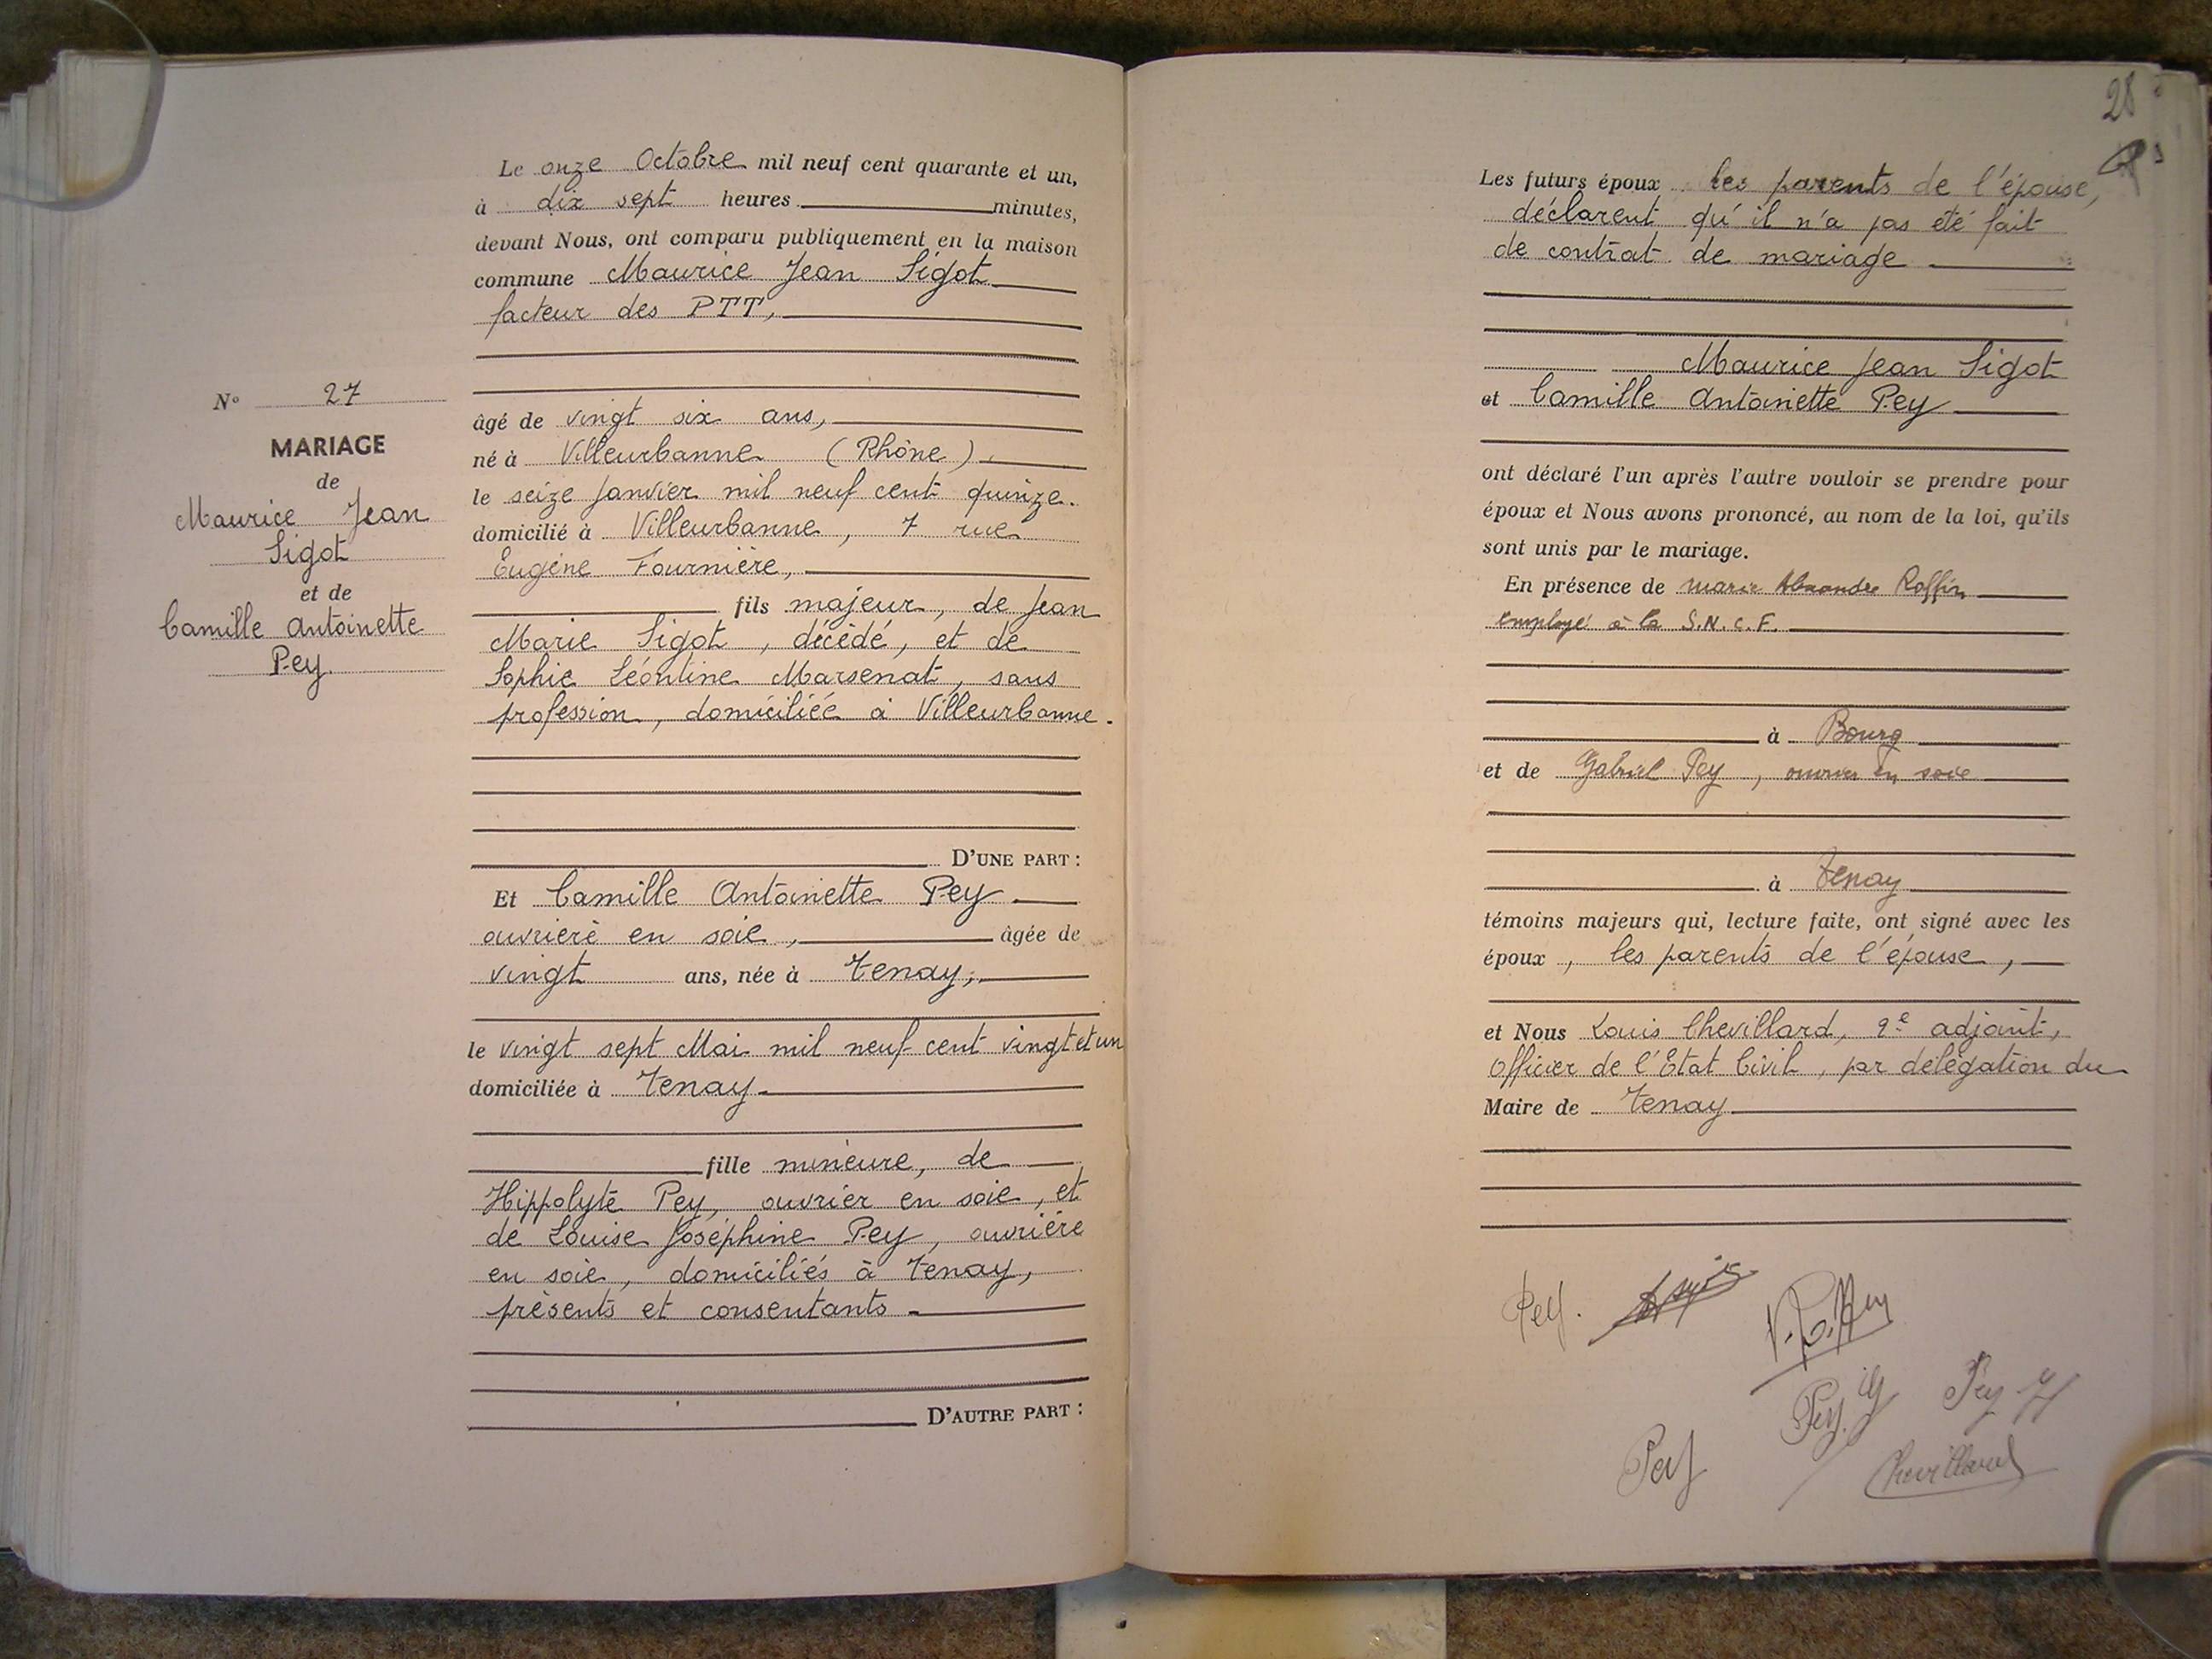 Le onze Octobre mil neuf cent quarante et un,
à dix sept heures minutes,
devant Nous, ont comparu publiquement en la maison
commune Maurice Jean Sigot
facteur des PTT,
N° 27
MARIAGE
de
Maurice Jean
Sigot
et de
Camille Antoinette
Pey
âgé de vingt six ans,
né à Villeurbanne (Rhône)
le seize Janvier mil neuf cent quinze.
domicilié à Villeurbanne, 7 rue
Eugène Fournière,
fils majeur, de Jean
Marie Sigot, décédé, et de
Sophie Léontine Marsenat, sans
profession, domiciliée à Villeurbanne.
D'UNE PART :
Et Camille Antoinette Pey
ouvrière en soie, âgée de
vingt ans, née à Tenay,
le vingt sept Mai mil neuf cent vingt et un
domiciliée à Tenay
fille mineure, de
Hippolyte Pey, ouvrier en soie, et
de Louise Joséphine Pey, ouvrière
en soie, domiciliés à Tenay,
présents et consentants
D'AUTRE PART :
28
Les futurs époux les parents de l'épouse,
déclarent qu'il n'a pas été fait
de contrat de mariage
Maurice Jean Sigot
et Camille Antoinette Pey
ont déclaré l'un après l'autre vouloir se prendre pour
époux et Nous avons prononcé, au nom de la loi, qu'ils
sont unis par le mariage.
En présence de Marie Roffin
employé à la S.N.C.F.
à Bourg
et de Gabriel Pey, ouvrier en soie
à Tenay
témoins majeurs qui, lecture faite, ont signé avec les
époux, les parents de l'épouse,
et Nous Louis Chevillard, 2e adjoint,
Officier de l'Etat Civil, par délégation du
Maire de Tenay
Pey.
Pey
Pey
Pey
Chevillard